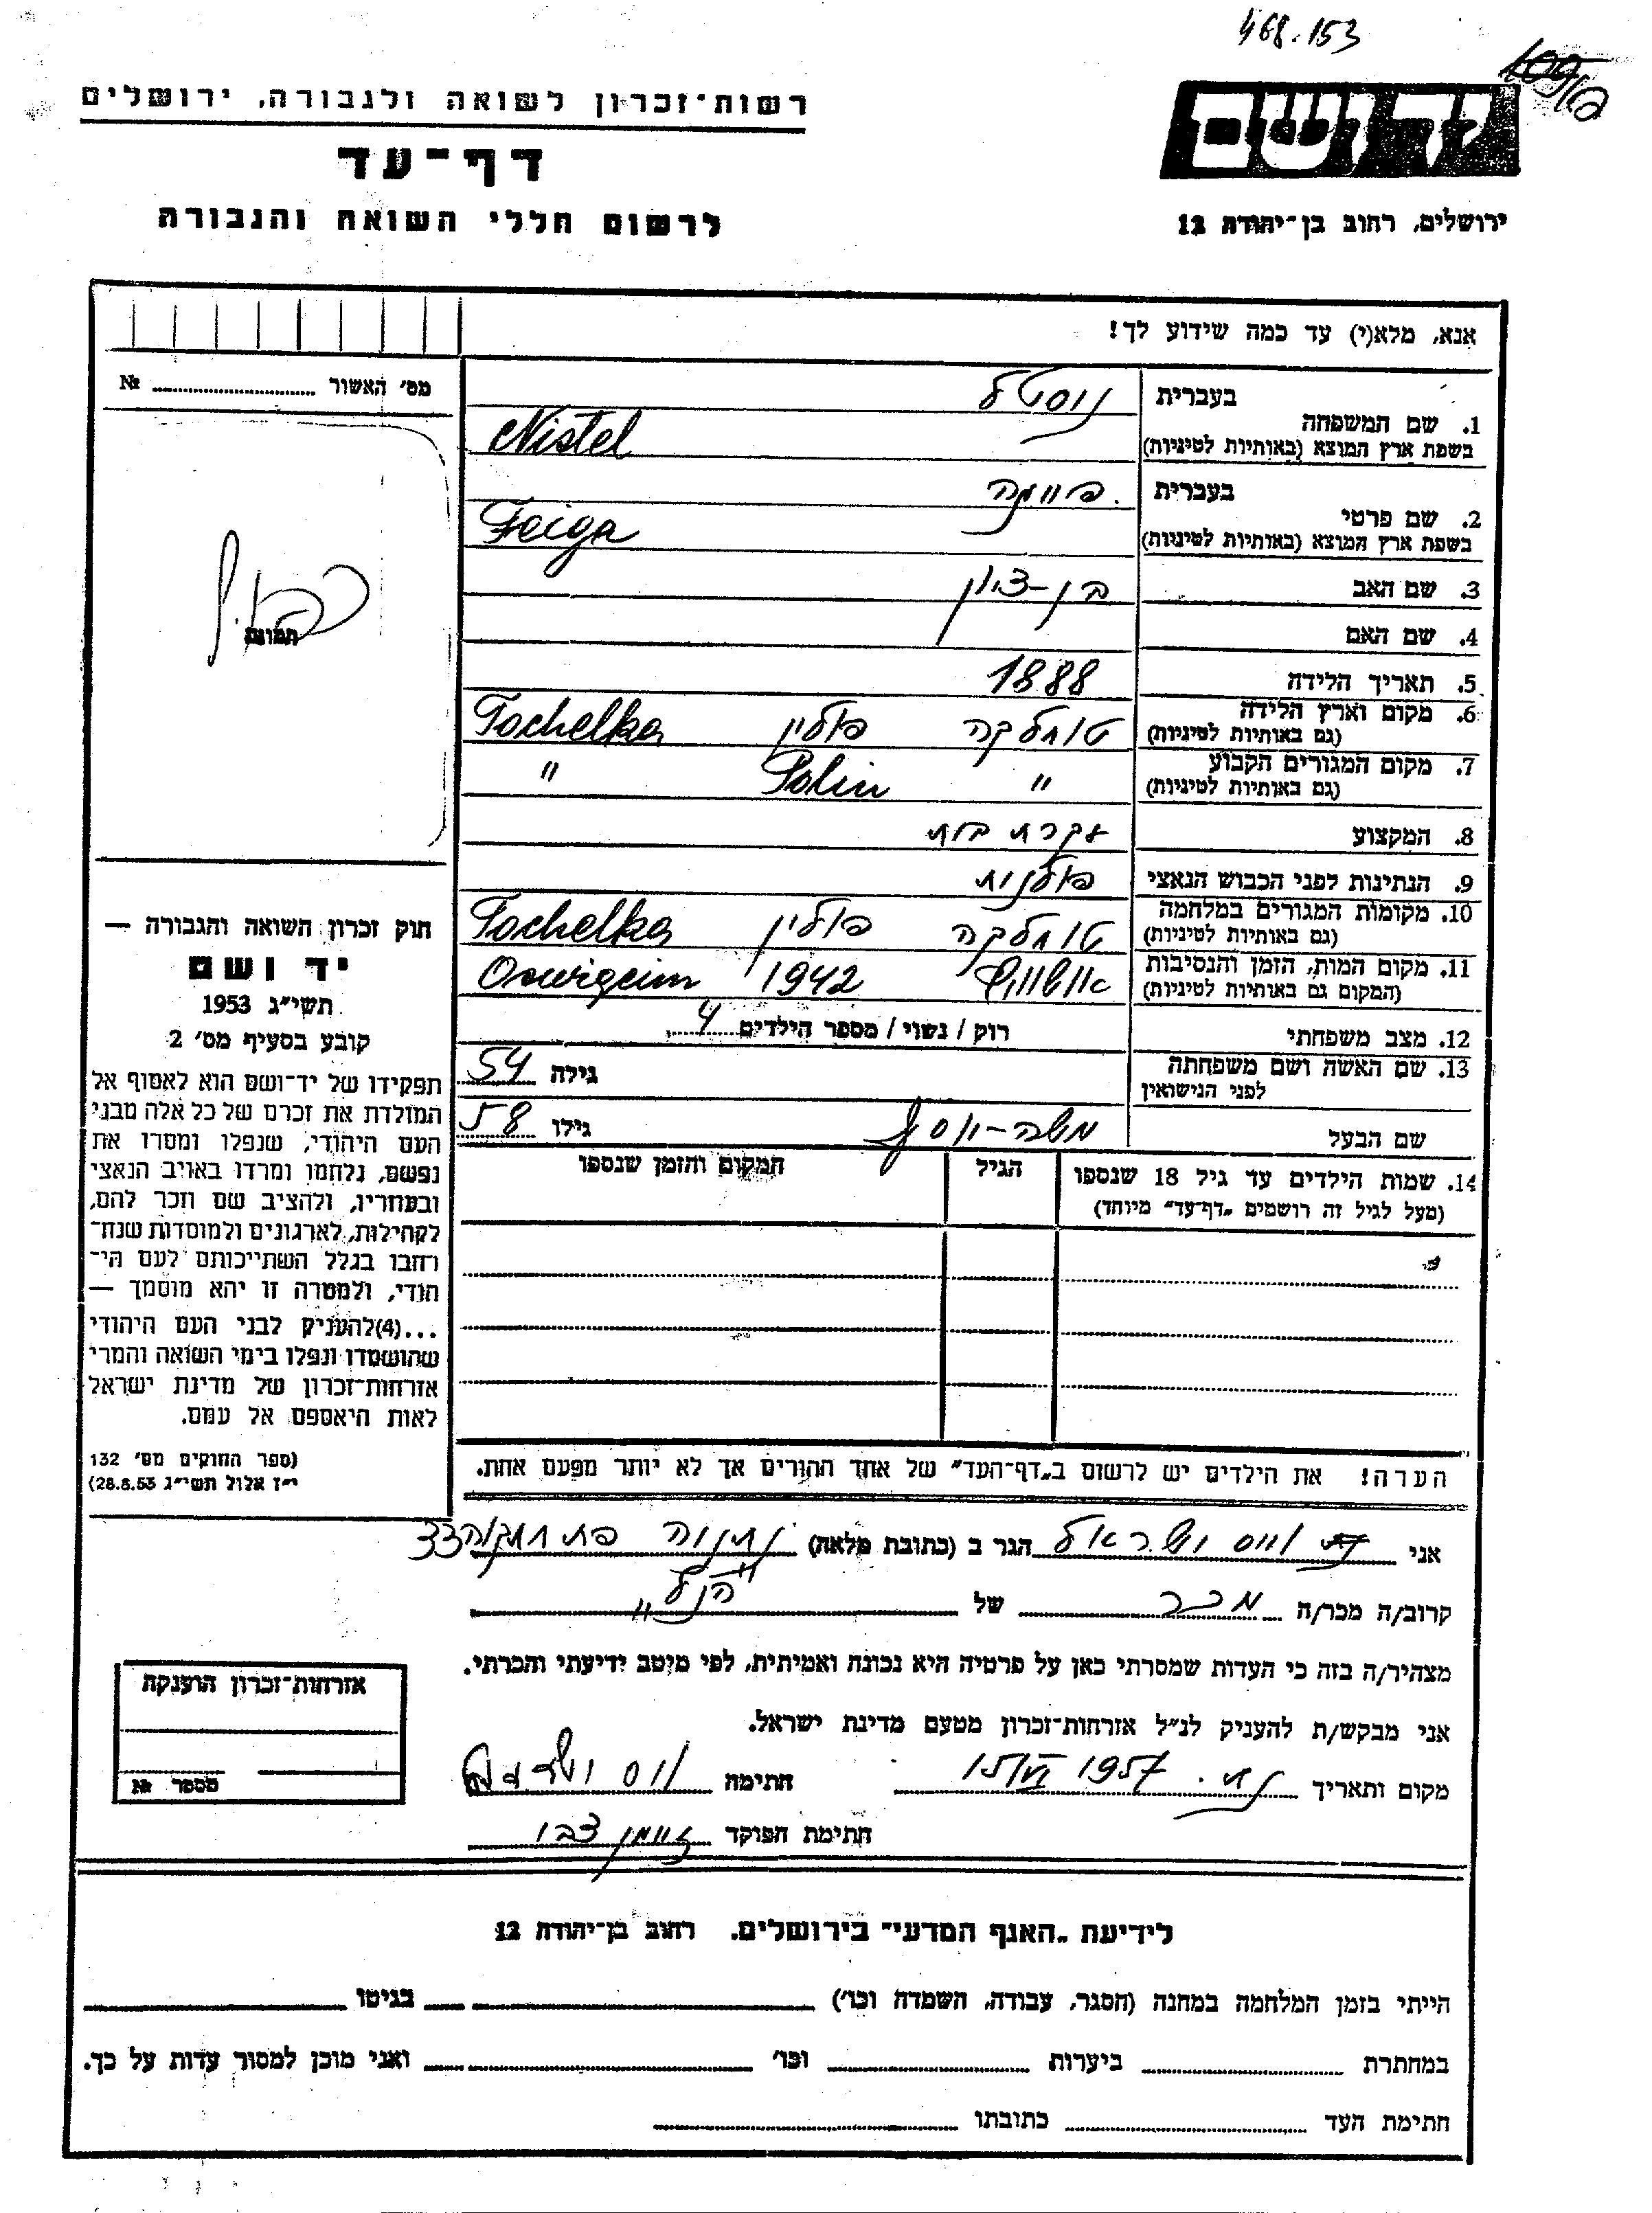 468.153
רשות־זכרון לשואה ולגבורה, ירושלים
דף־עד
לרשום חללי השואה והגבורה
יד ושם
ירושלים, רחוב בן־יהודה 12
אנא, מלא(י) עד כמה שידוע לך!
מס' האשור № 
תמונה
1. שם המשפחה
בעברית ניסטל
בשפת ארץ המוצא (באותיות לטיניות) Nistel
2. שם פרטי
בעברית פייגה
בשפת ארץ המוצא (באותיות לטיניות) Feiga
3. שם האב בן-ציון
4. שם האם
5. תאריך הלידה 1888
6. מקום וארץ הלידה טוחלקה פולין Tochelka
(גם באותיות לטיניות)
7. מקום המגורים הקבוע " Polin "
(גם באותיות לטיניות)
8. המקצוע עקרת בית
9. הנתינות לפני הכבוש הנאצי פולנית
10. מקומות המגורים במלחמה טוחלקה פולין Tochelka
(גם באותיות לטיניות)
11. מקום המות, הזמן והנסיבות אושוויץ 1942 Oswigcim
(המקום גם באותיות לטיניות)
12. מצב משפחתי רווק / נשוי / מספר הילדים 4
13. שם האשה ושם משפחתה גילה 54
לפני הנישואין
שם הבעל משה-יוסף גילו 58
14. שמות הילדים עד גיל 18 שנספו הגיל המקום והזמן שנספו
(מעל לגיל זה רושמים "דף־עד" מיוחד)
הערה! את הילדים יש לרשום ב"דף־העד" של אחד ההורים אך לא יותר מפעם אחת.
חוק זכרון השואה והגבורה —
יד ושם
תשי"ג 1953
קובע בסעיף מס' 2
תפקידו של יד־ושם הוא לאסוף אל
המולדת את זכרם של כל אלה מבני
העם היהודי, שנפלו ומסרו את
נפשם, נלחמו ומרדו באויב הנאצי
ובעוזריו, ולהציב שם וזכר להם,
לקהילות, לארגונים ולמוסדות שנח־
רבו בגלל השתייכותם לעם הי־
הודי, ולמטרה זו יהא מוסמך —
...(4)להעניק לבני העם היהודי
שהושמדו ונפלו בימי השואה והמרי
אזרחות־זכרון של מדינת ישראל
לאות היאספם אל עמם.
(ספר החוקים מס' 132
י"ז אלול תשי"ג 28.8.53)
אני וויס ישראל הגר ב (כתובת מלאה) נתניה
קרוב/ה מכר/ה מכר של "הנ"ל"
מצהיר/ה בזה כי העדות שמסרתי כאן על פרטיה היא נכונה ואמיתית, לפי מיטב ידיעתי והכרתי.
אני מבקש/ת להעניק לנ"ל אזרחות־זכרון מטעם מדינת ישראל.
מקום ותאריך 1957 חתימה וויס ישראל
חתימת הפוקד
אזרחות־זכרון הוענקה
מספר №
לידיעת "האגף המדעי" בירושלים. רחוב בן־יהודה 12
הייתי בזמן המלחמה במחנה (הסגר, עבודה, השמדה וכו') בגיטו
במחתרת ביערות וכו' ואני מוכן למסור עדות על כך.
חתימת העד כתובתו